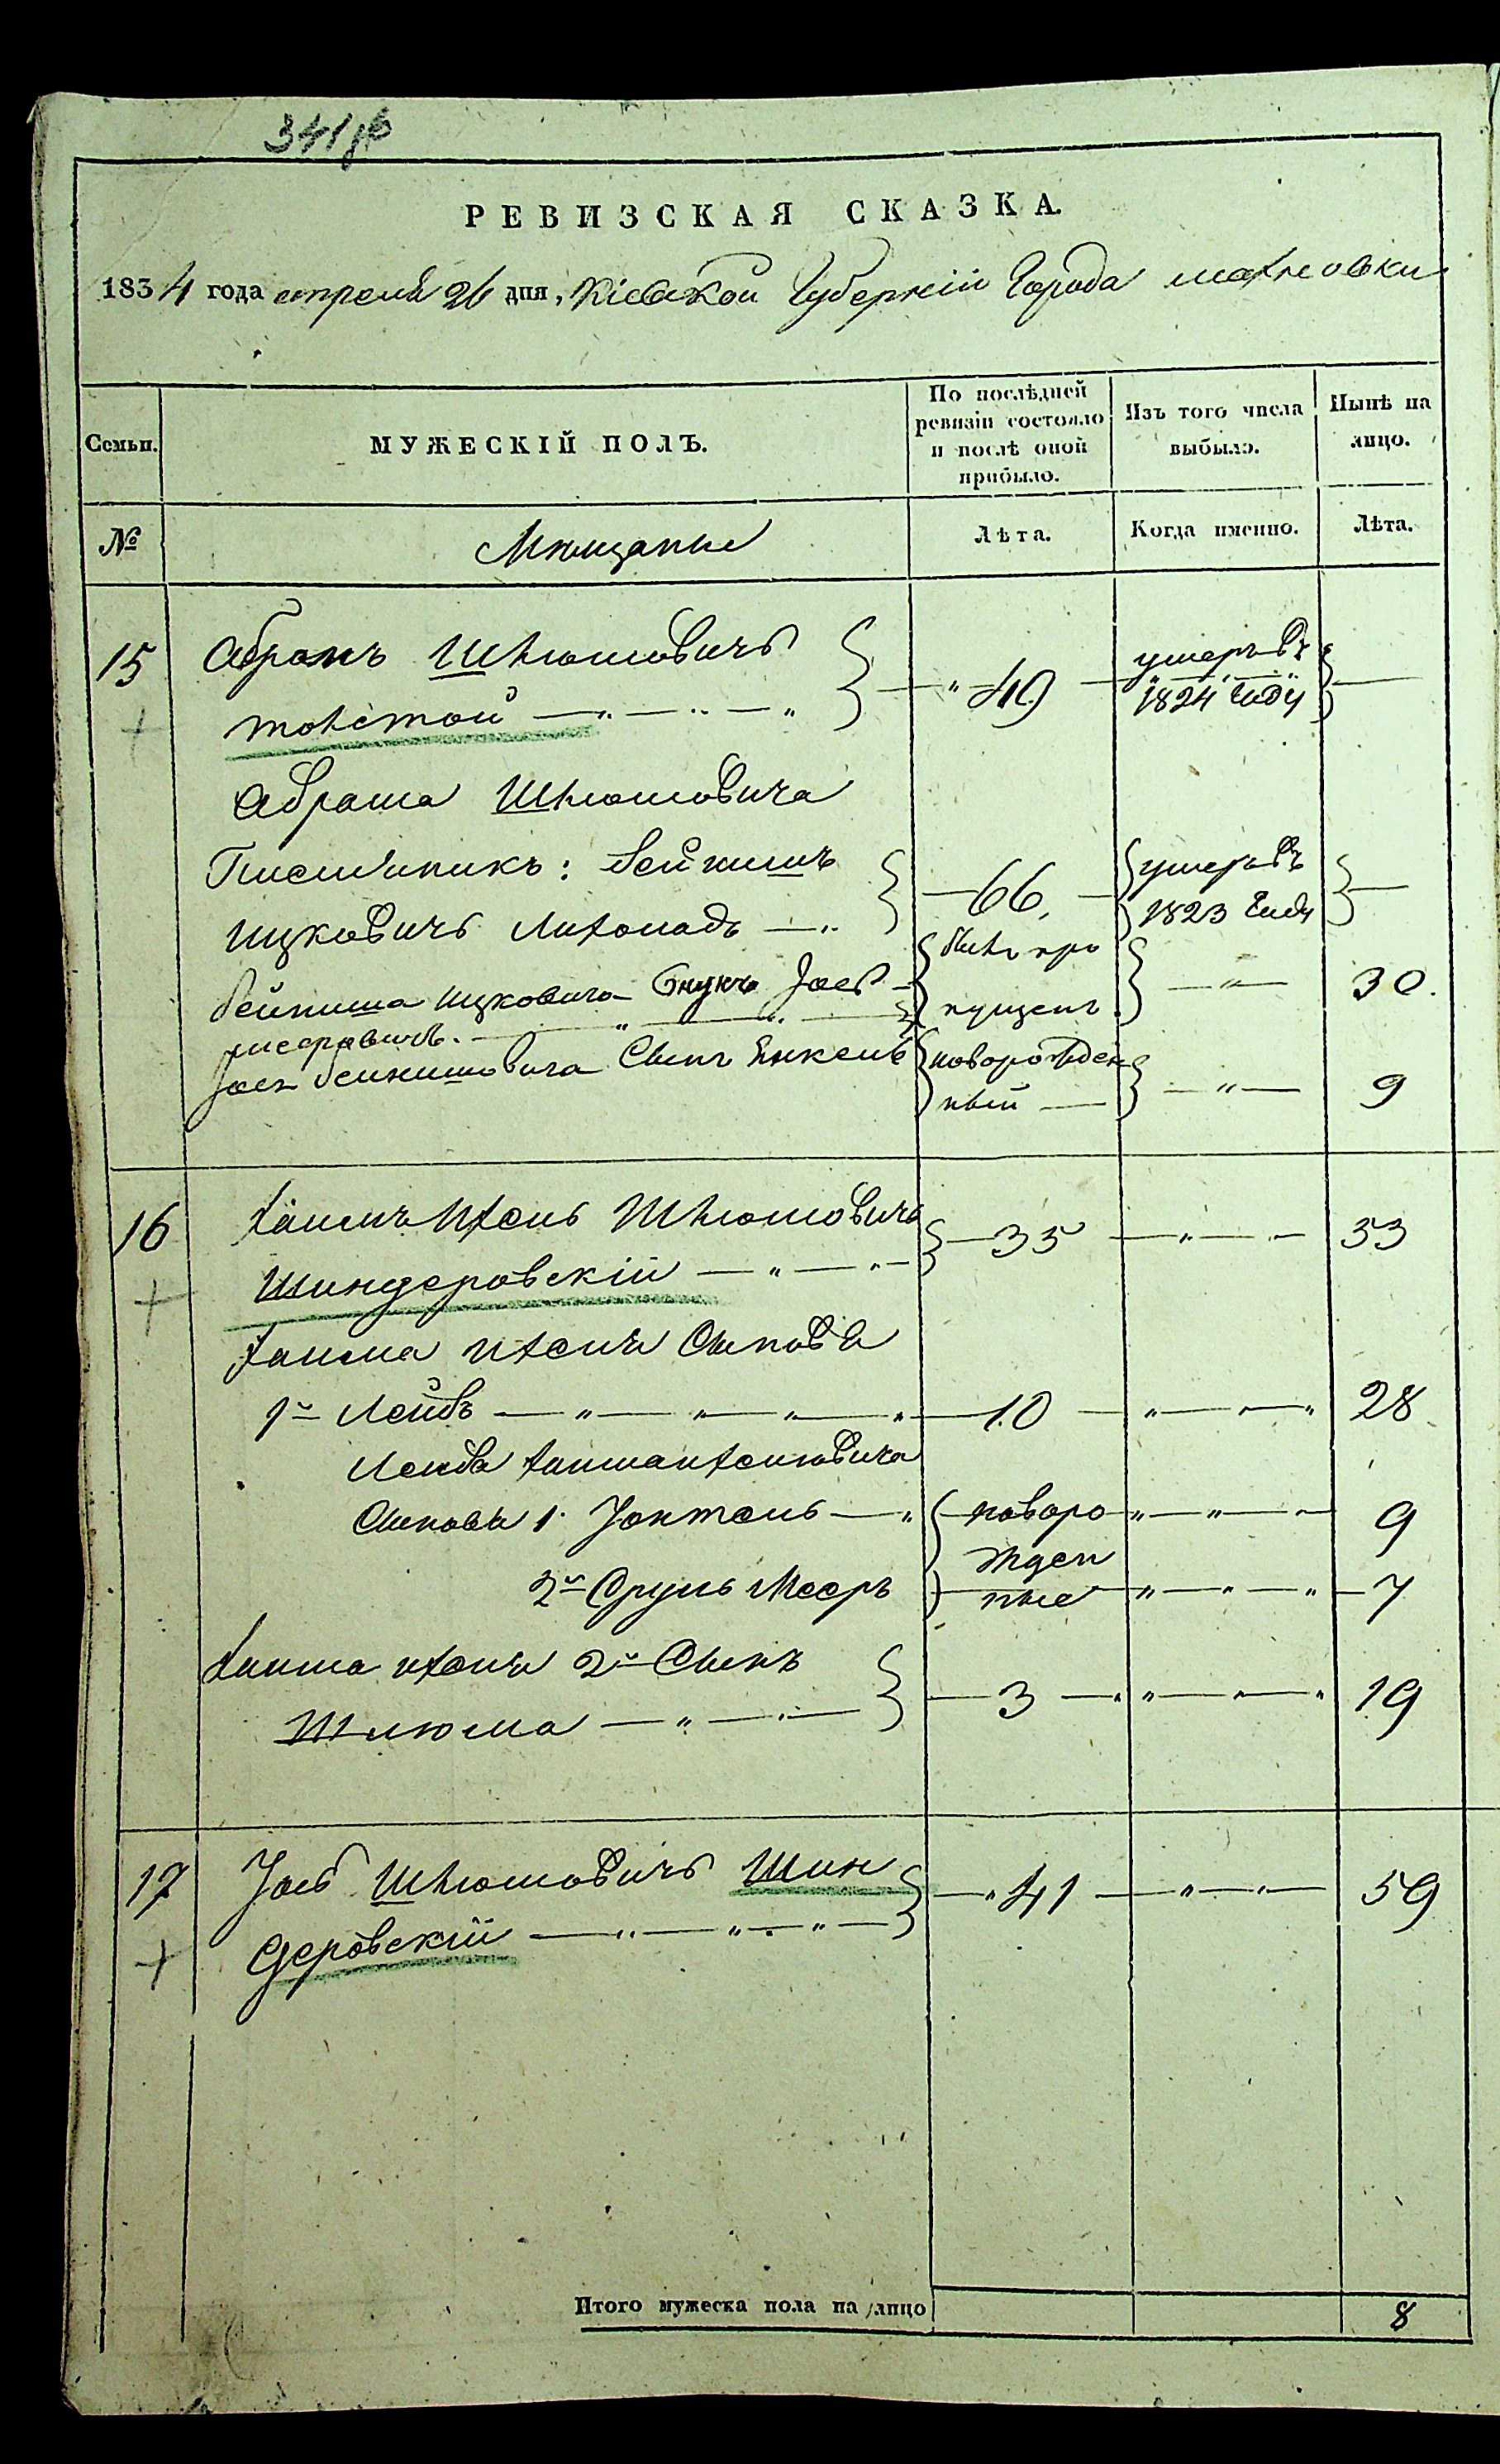 341 об
РЕВИЗСКАЯ СКАЗКА.
1834 года апреля 26 дня, Кіевской Губерніи Города махновки
Семьи.
МУЖЕСКІЙ ПОЛЪ.
По послѣдней ревизіи состояло и послѣ оной прибыло.
Изъ того числа выбыло.
Нынѣ на лицо.
№
Мѣщанѣ
Лѣта.
Когда именно.
Лѣта.
15 Абрамъ Шлюмовичъ 49 умеръ въ
толстой 1824 году
Абрама Шлюмовича
Племѣникъ: Бейнишъ 66 умеръ въ
Ицковичъ 1823 Году
Бейниша Ицковича внукъ Іось былъ про 30.
пущенъ
Іося Бейнишовича Сынъ Янкель новорожден 9
ный
16 Хаимъ Ихель Шлюмовичъ 35 53
Шиндеровскій
Хаима ихеля Сыновья
1й Лейбъ 10 28
Лейба Хаимаихелиовича
Сыновья 1. Іонтель новоро 9
жден
2й Сруль Мееръ ные 7
Хаима ихеля 2й Сынъ
Шлюма 3 19
17 Іось Шлюмовичъ Шин 41 59
деровскій
Итого мужеска пола на лицо 8